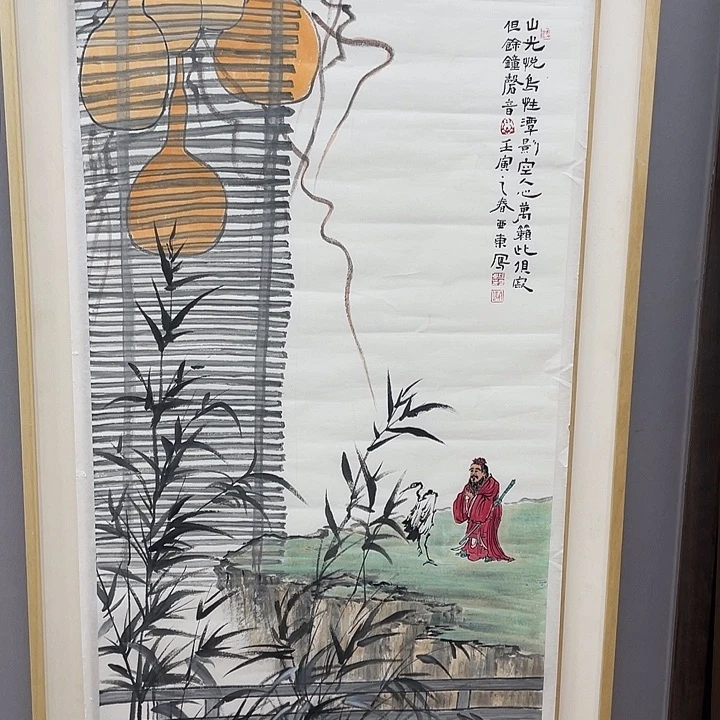 山光悦鸟性潭影空人心萬籟此俱寂
但餘鐘磬音 壬寅之春亜東寫